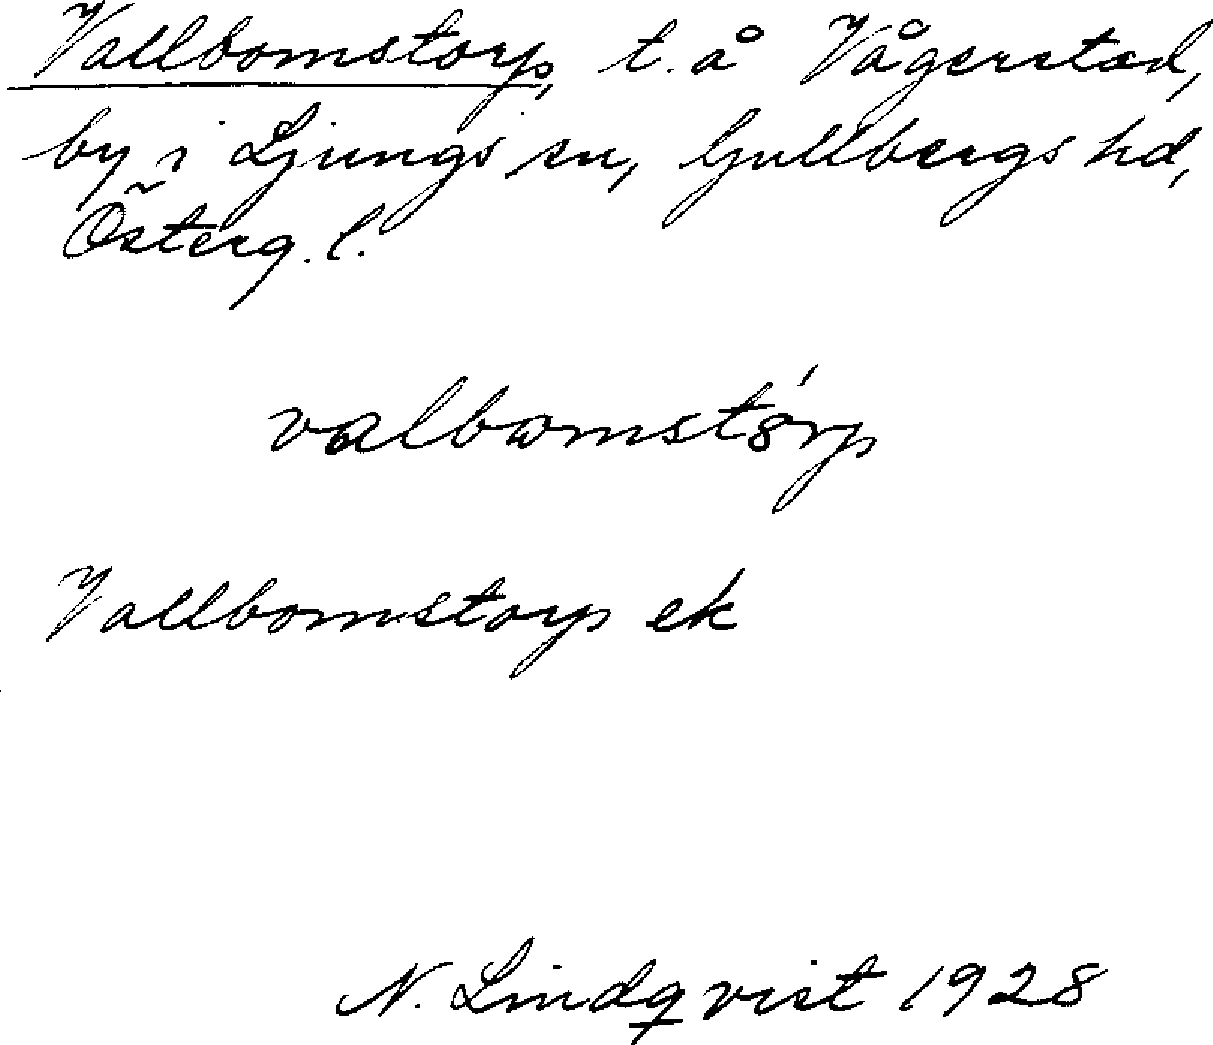 Vallbomstorp, t. å Vågerstad,
by i Ljungs sn, Gullbergs hd,
Österg. l.
valbomstórp
Vallbomstorp ek
N. Lindqvist 1928